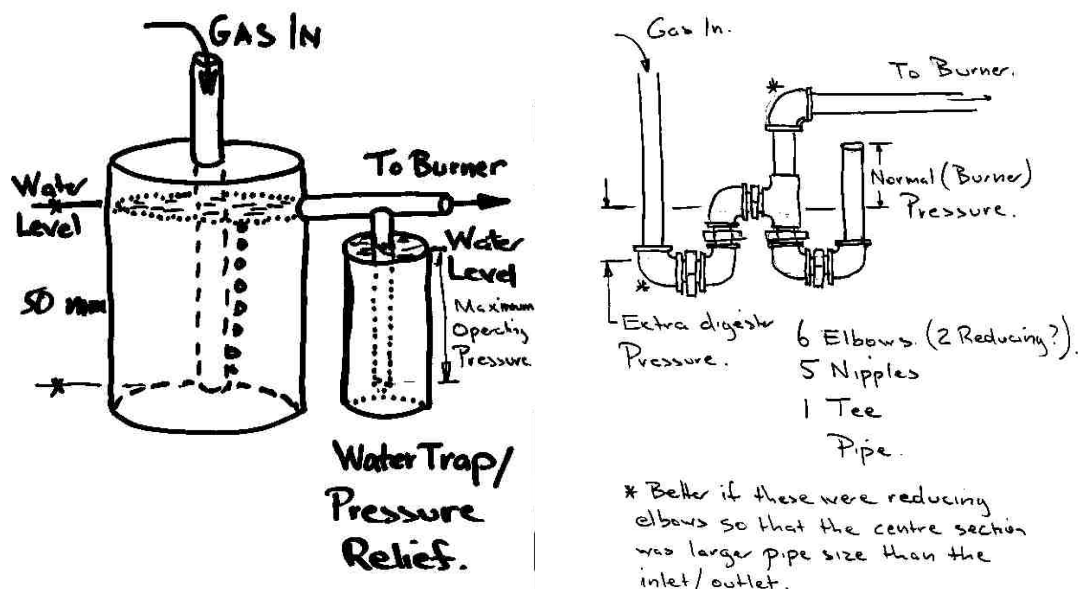 GAS IN
Water
Level
50 mm
To Burner
Water
Level
Maximum
Operating
Pressure
Water Trap/
Pressure
Relief.
Gas In.
To Burner.
*
Normal (Burner)
Pressure.
*
Extra digester
Pressure.
6 Elbows (2 Reducing?).
5 Nipples
1 Tee
Pipe.
* Better if these were reducing
elbows so that the centre section
was larger pipe size than the
inlet/outlet.